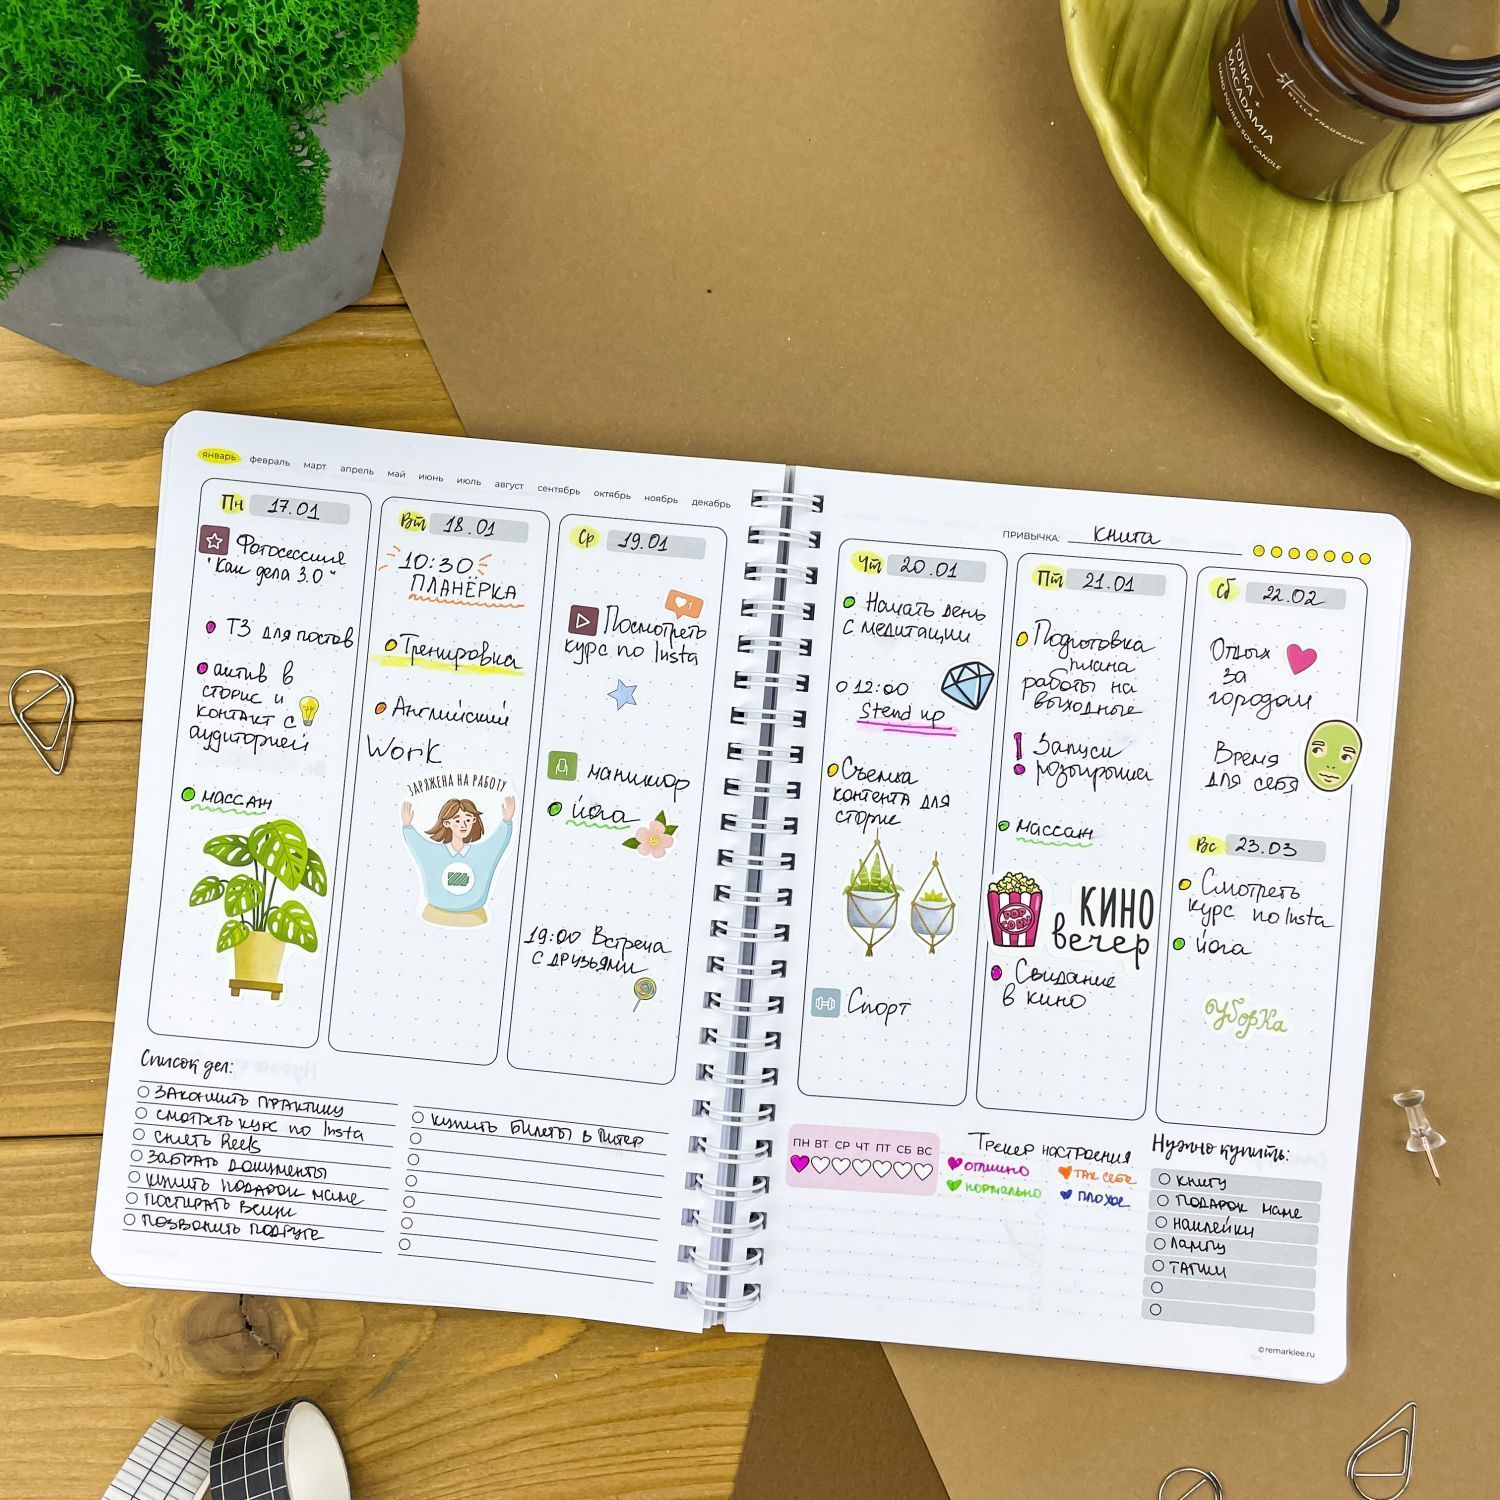 TONKA +
MACADAMIA
HAND POURED SOY CANDLE
STELLA FRAGRANCE
январь февраль март апрель май июнь июль август сентябрь октябрь ноябрь декабрь
Пн 17.01
Фотосессия
"Как дела 3.0"
ТЗ для постов
актив в
сторис и
контакт с
аудиторией
массаж
Вт 18.01
10:30
ПЛАНЁРКА
Тренировка
Английский
Work
ЗАРЯЖЕНА НА РАБОТУ
Ср 19.01
1
Посмотреть
курс по Insta
маникюр
йога
19:00 Встреча
с друзьями
Список дел:
закончить практику
смотреть курс по Insta
снять Reels
забрать документы
купить подарок маме
постирать вещи
позвонить подруге
купить билеты в Питер
ПРИВЫЧКА: книга
Чт 20.01
Начать день
с медитации
12:00
Stend up
Съемка
контента для
сторис
Спорт
Пт 21.01
Подготовка
плана
работы на
выходные
Запуск
розыгрыша
массаж
POP
CORN
КИНО
вечер
Свидание
в кино
Сб 22.02
Отдых
за
городом
Время
для себя
Вс 23.03
Смотреть
курс по Insta
йога
уборка
ПН ВТ СР ЧТ ПТ СБ ВС
Трекер настроения
отлично
так себе
нормально
плохое
Нужно купить:
книгу
подарок маме
наклейки
лампу
тапки
©remarklee.ru